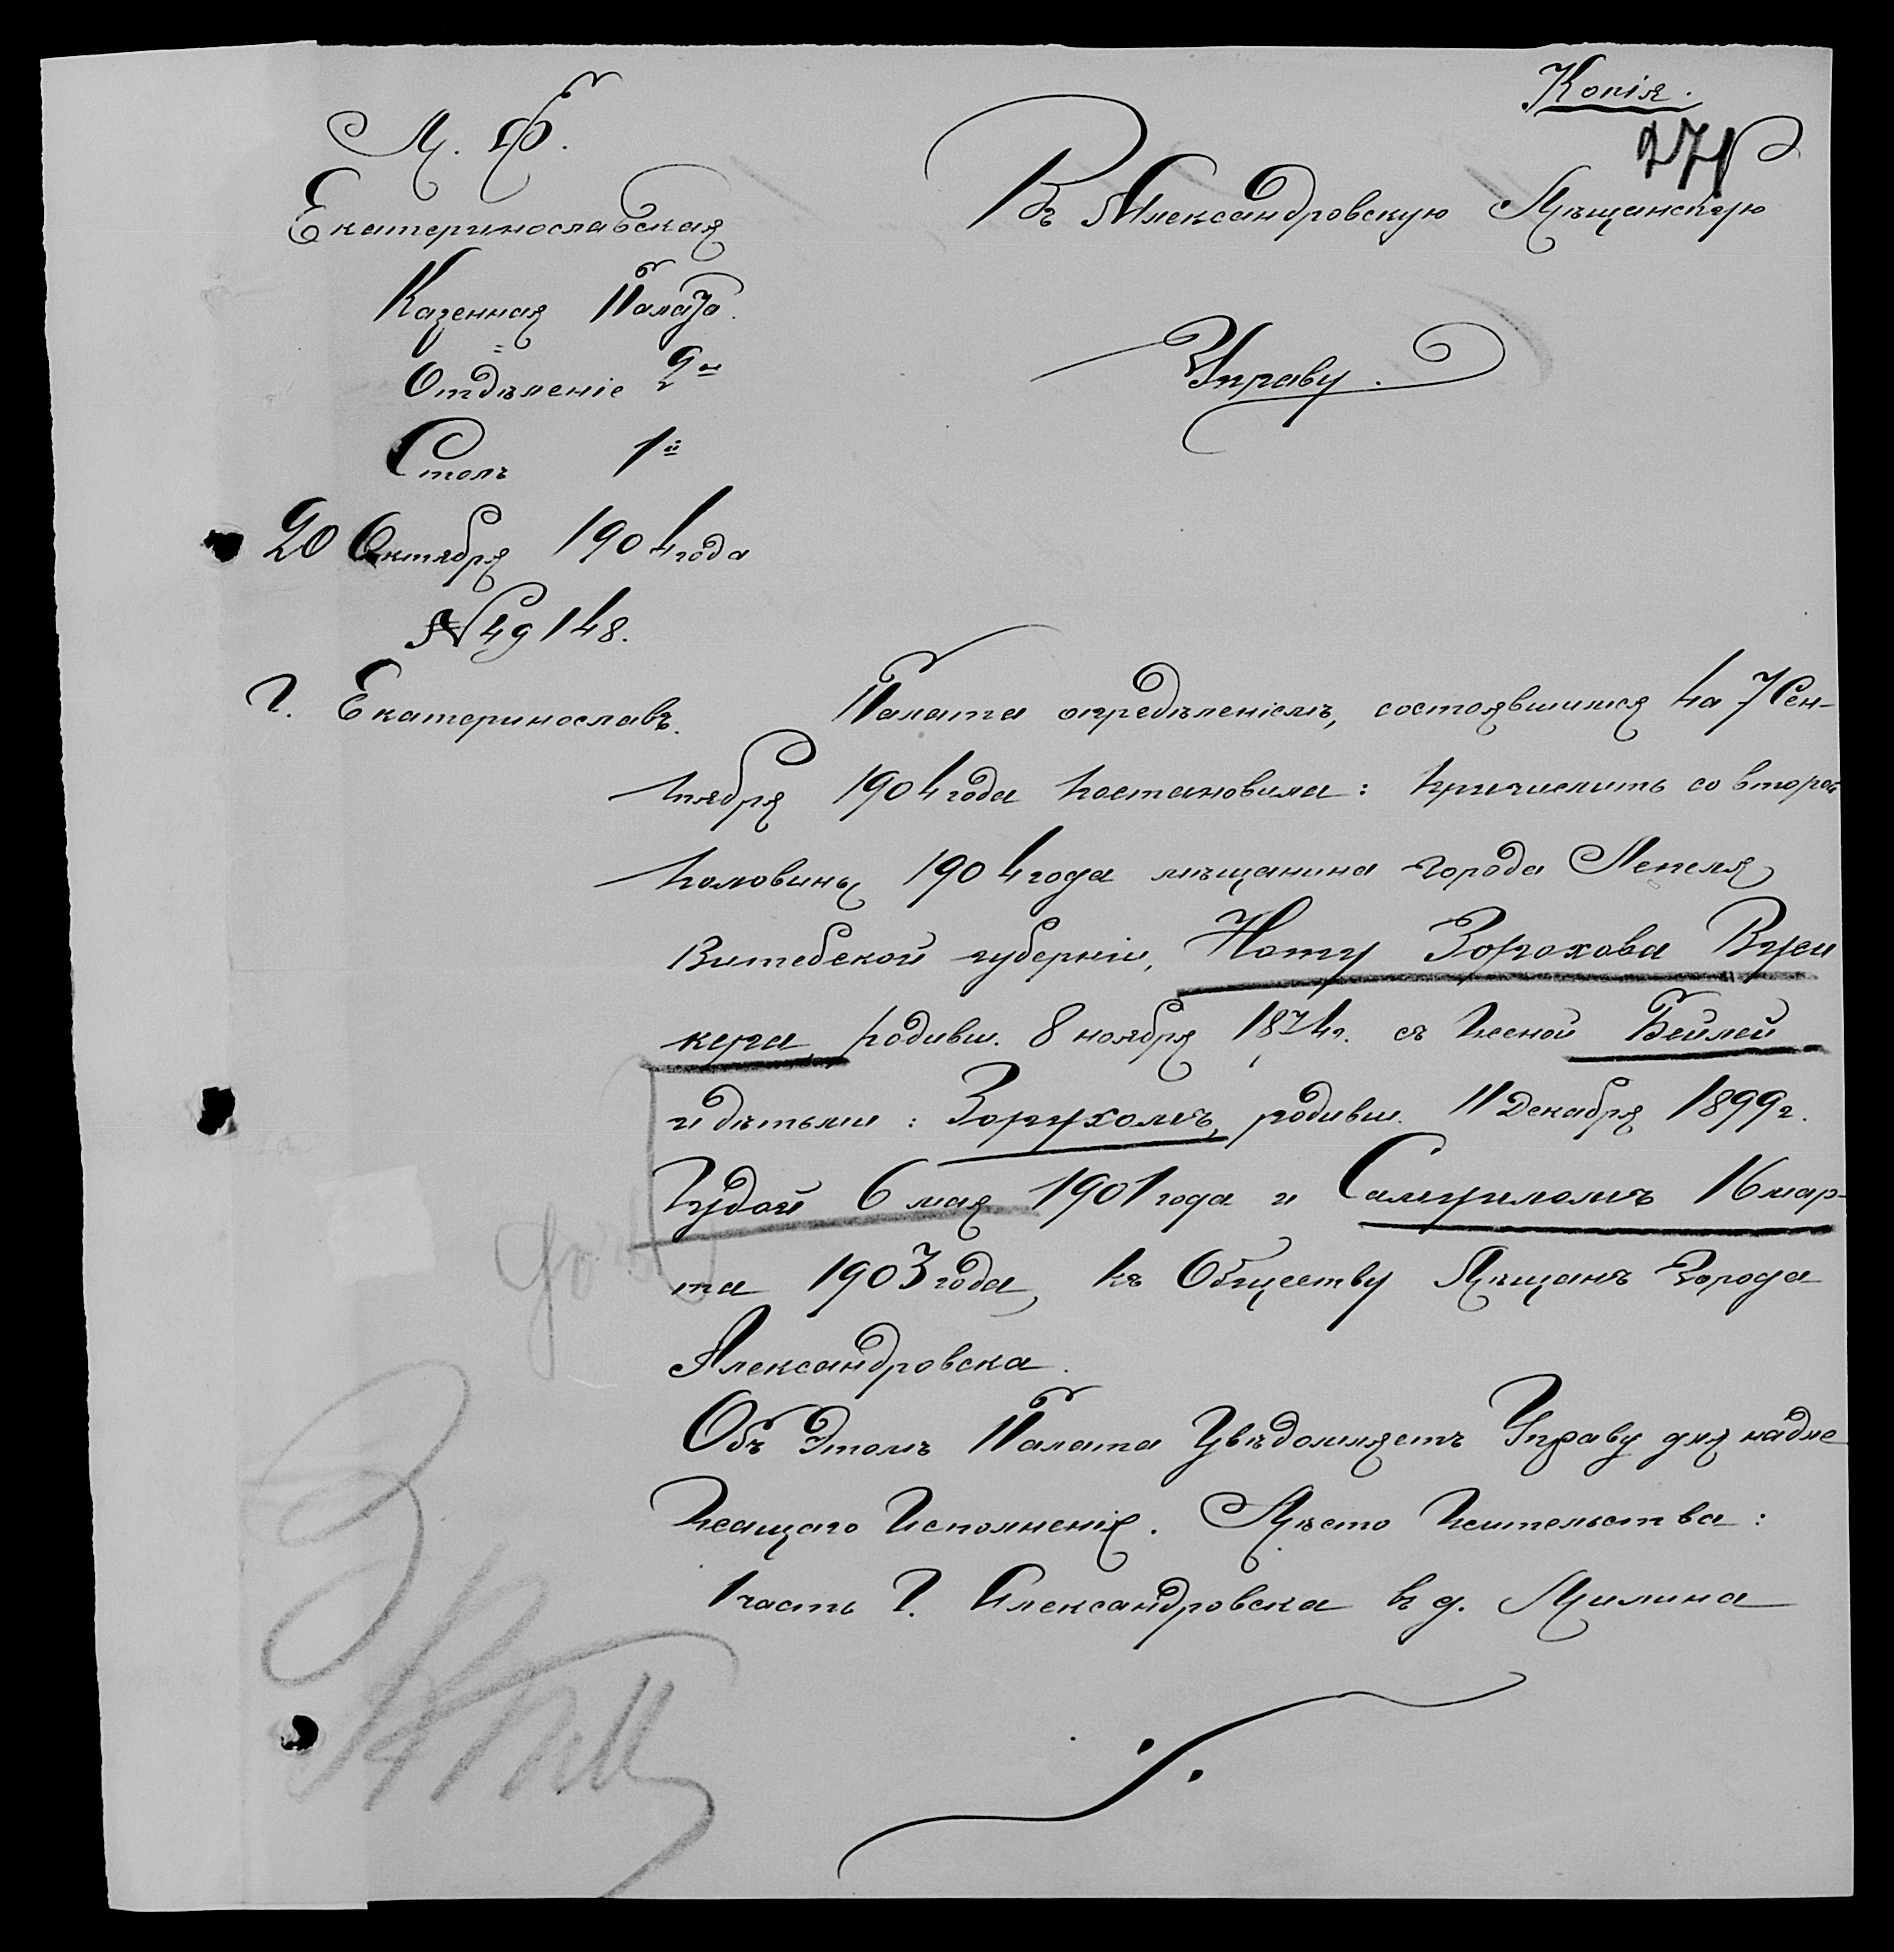 Копія.
271
М. Ф.
Екатеринославская
Казенная Палата.
Отдѣленіе 2е
Столъ 1й
20 Октября 1904 года
№ 49148.
Г. Екатеринославъ.
Въ Александровскую Мѣщанскую
Управу.
Палата опредѣленіемъ, состоявшимся на 7 Сен-
тября 1904 года постановила: причислить со второй
половины 1904 года мѣщанина города Лепеля
Витебской губерніи, Ноту Зорохова
кера, родивш. 8 ноября 1874 г. съ женой Бейлей
и дѣтьми: Зорухомъ, родивш. 11 Декабря 1899 г.
Іудой 6 мая 1901 года и Самуиломъ 16 мар-
та 1903 года, къ Обществу Мѣщанъ Города
Александровска.
Объ этомъ Палата Увѣдомляетъ Управу для надле
жащаго Исполненія. Мѣсто жительства:
1 часть Г. Александровска въ д. Милина